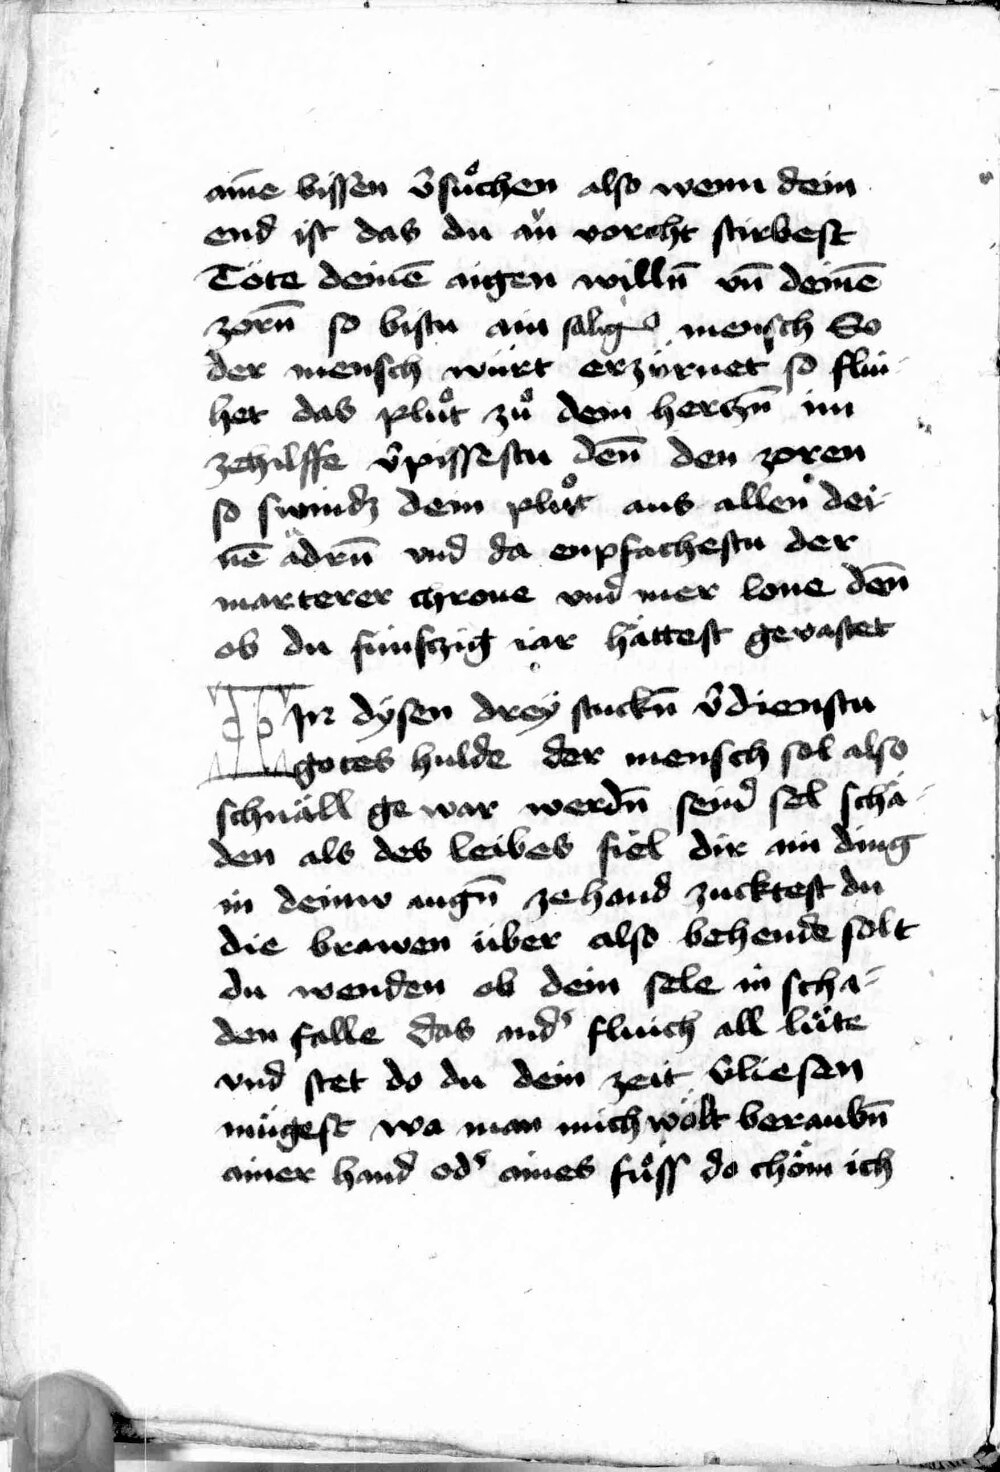 aine bissen v̄sůchen also wenn dein
end ist das du an vorcht stirbest
Töte deinē aigen willn̄ vn̄ deinē
zorn̄ so bistu ain salig mensch So
der mensch würt erzürnet so fliu-
het das plůt zů dem hertzn̄ im
zehilffe v̄pissestu den̄ den zoren
so swindz dein plůt aus allen dei-
nē ädrn̄ vnd da enpfachestu der
marterer chrone vnd mer lone den̄
ob du fünfczig iar hättest gevastet
Mit dÿsen dreÿ stuckn̄ v̄dienstu
gotes hulde der mensch sol also
schnäll gewar werdn̄ seinr sel schä-
den als des leibes fiel dir ain ding
in deinw augn̄ zehand zucktest du
die brawen über also behende solt
du wenden ob dein sele in scha-
den falle das and' fliuch all lüte
vnd stet do du dein zeit v̄liesen
mügest wa man mich wölt beraubn̄
ainer hand od' aines fůss do chöm ich